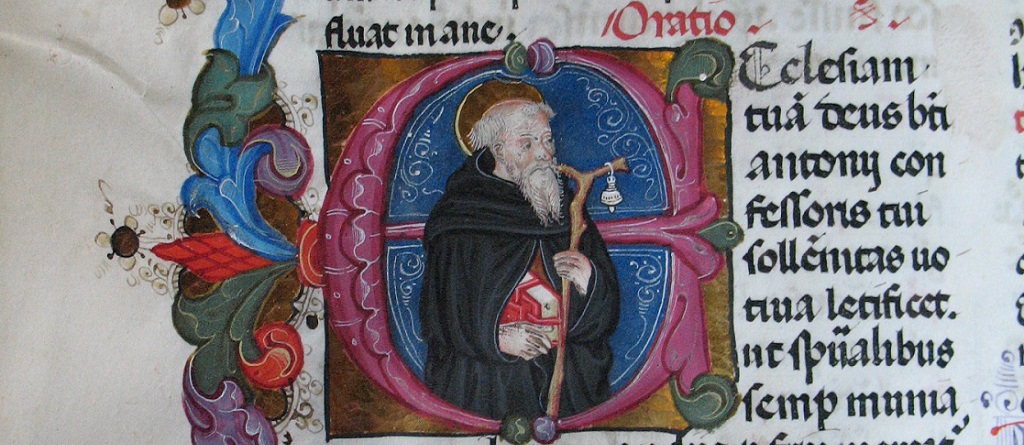 fluat in ane. Oratio
Ecclesiam
tuã deus bti
antonij con
fessoris tui
sollẽnitas uo
tiua letificet.
ut spũalibus
semp munia